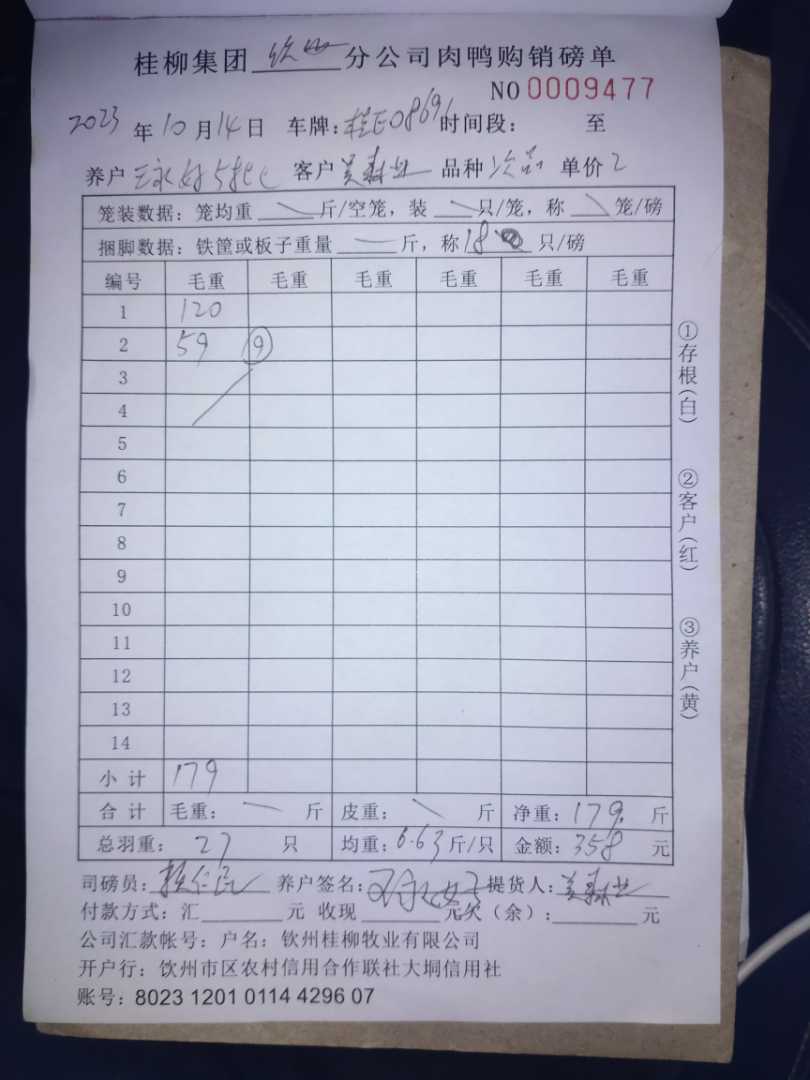 桂柳集团 钦州 分公司肉鸭购销磅单
NO 0009477
2023 年 10 月 14 日 车牌:桂E08691 时间段: 至
养户 客户 品种 次品 单价 2
笼装数据:笼均重 斤/空笼,装 只/笼,称 笼/磅
捆脚数据:铁筐或板子重量 斤,称 18 只/磅
编号 毛重 毛重 毛重 毛重 毛重 毛重
1 120
2 59 ⑨
3
4
5
6
7
8
9
10
11
12
13
14
小计 179
合计 毛重: 斤 皮重: 斤 净重:179 斤
总羽重: 27 只 均重:6.63 斤/只 金额:358 元
司磅员: 养户签名: 提货人:
付款方式:汇 元 收现 元欠(余): 元
公司汇款帐号:户名:钦州桂柳牧业有限公司
开户行:饮州市区农村信用合作联社大垌信用社
账号:8023 1201 0114 4296 07
①存根(白)
②客户(红)
③养户(黄)